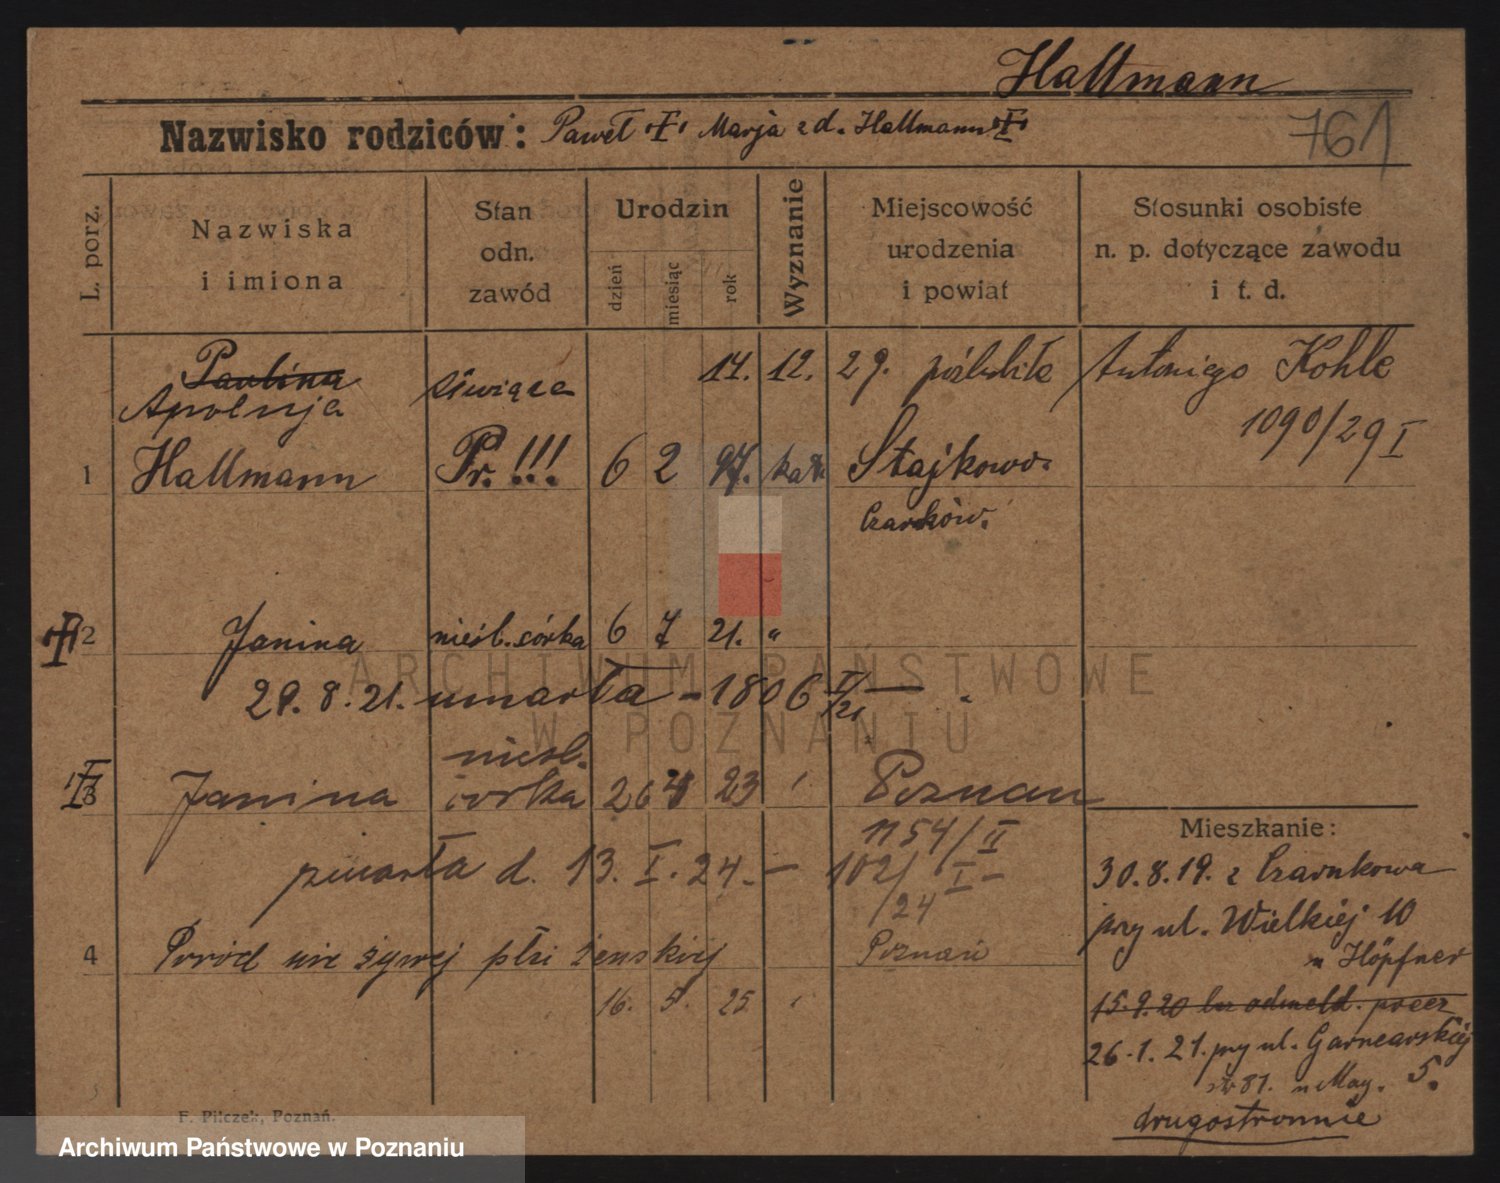 Hallmann
Nazwisko rodziców: Paweł Marja z d. Hallmann
761
L. porz.
Nazwiska
i imiona
Stan
odn.
zawód
Urodzin
dzień
miesiąc
rok
Wyznanie
Miejscowość
urodzenia
i powiat
Stosunki osobiste
n. p. dotyczące zawodu
i t. d.
Paulina
Apolonja
17. 12. 29. poślubiła Antoniego Kohle
1090/29 I
1 Hallmann Pr. !!! 6 2 97. kat. Stajkowo
Czarnków.
2 Janina nieśl. córka 6 7 21. "
29. 8. 21. umarła - 1806 /21
3 Janina nieśl. córka 26 23 Poznań
1154/II
zmarła d. 13. I. 24. - 102/I -
/24
4 Poród nie żywej płci żeńskiej Poznań
16. 5. 25
Mieszkanie:
30. 8. 19. z Czarnkowa
przy ul. Wielkiej 10
u Höpfner
15. 9. 20 bez odmeld. przez
26. 1. 21. przy ul. Garncarskiej
u May. 5.
drugostronnie
F. Pilczek, Poznań.
ARCHIWUM PAŃSTWOWE
W POZNANIU
Archiwum Państwowe w Poznaniu